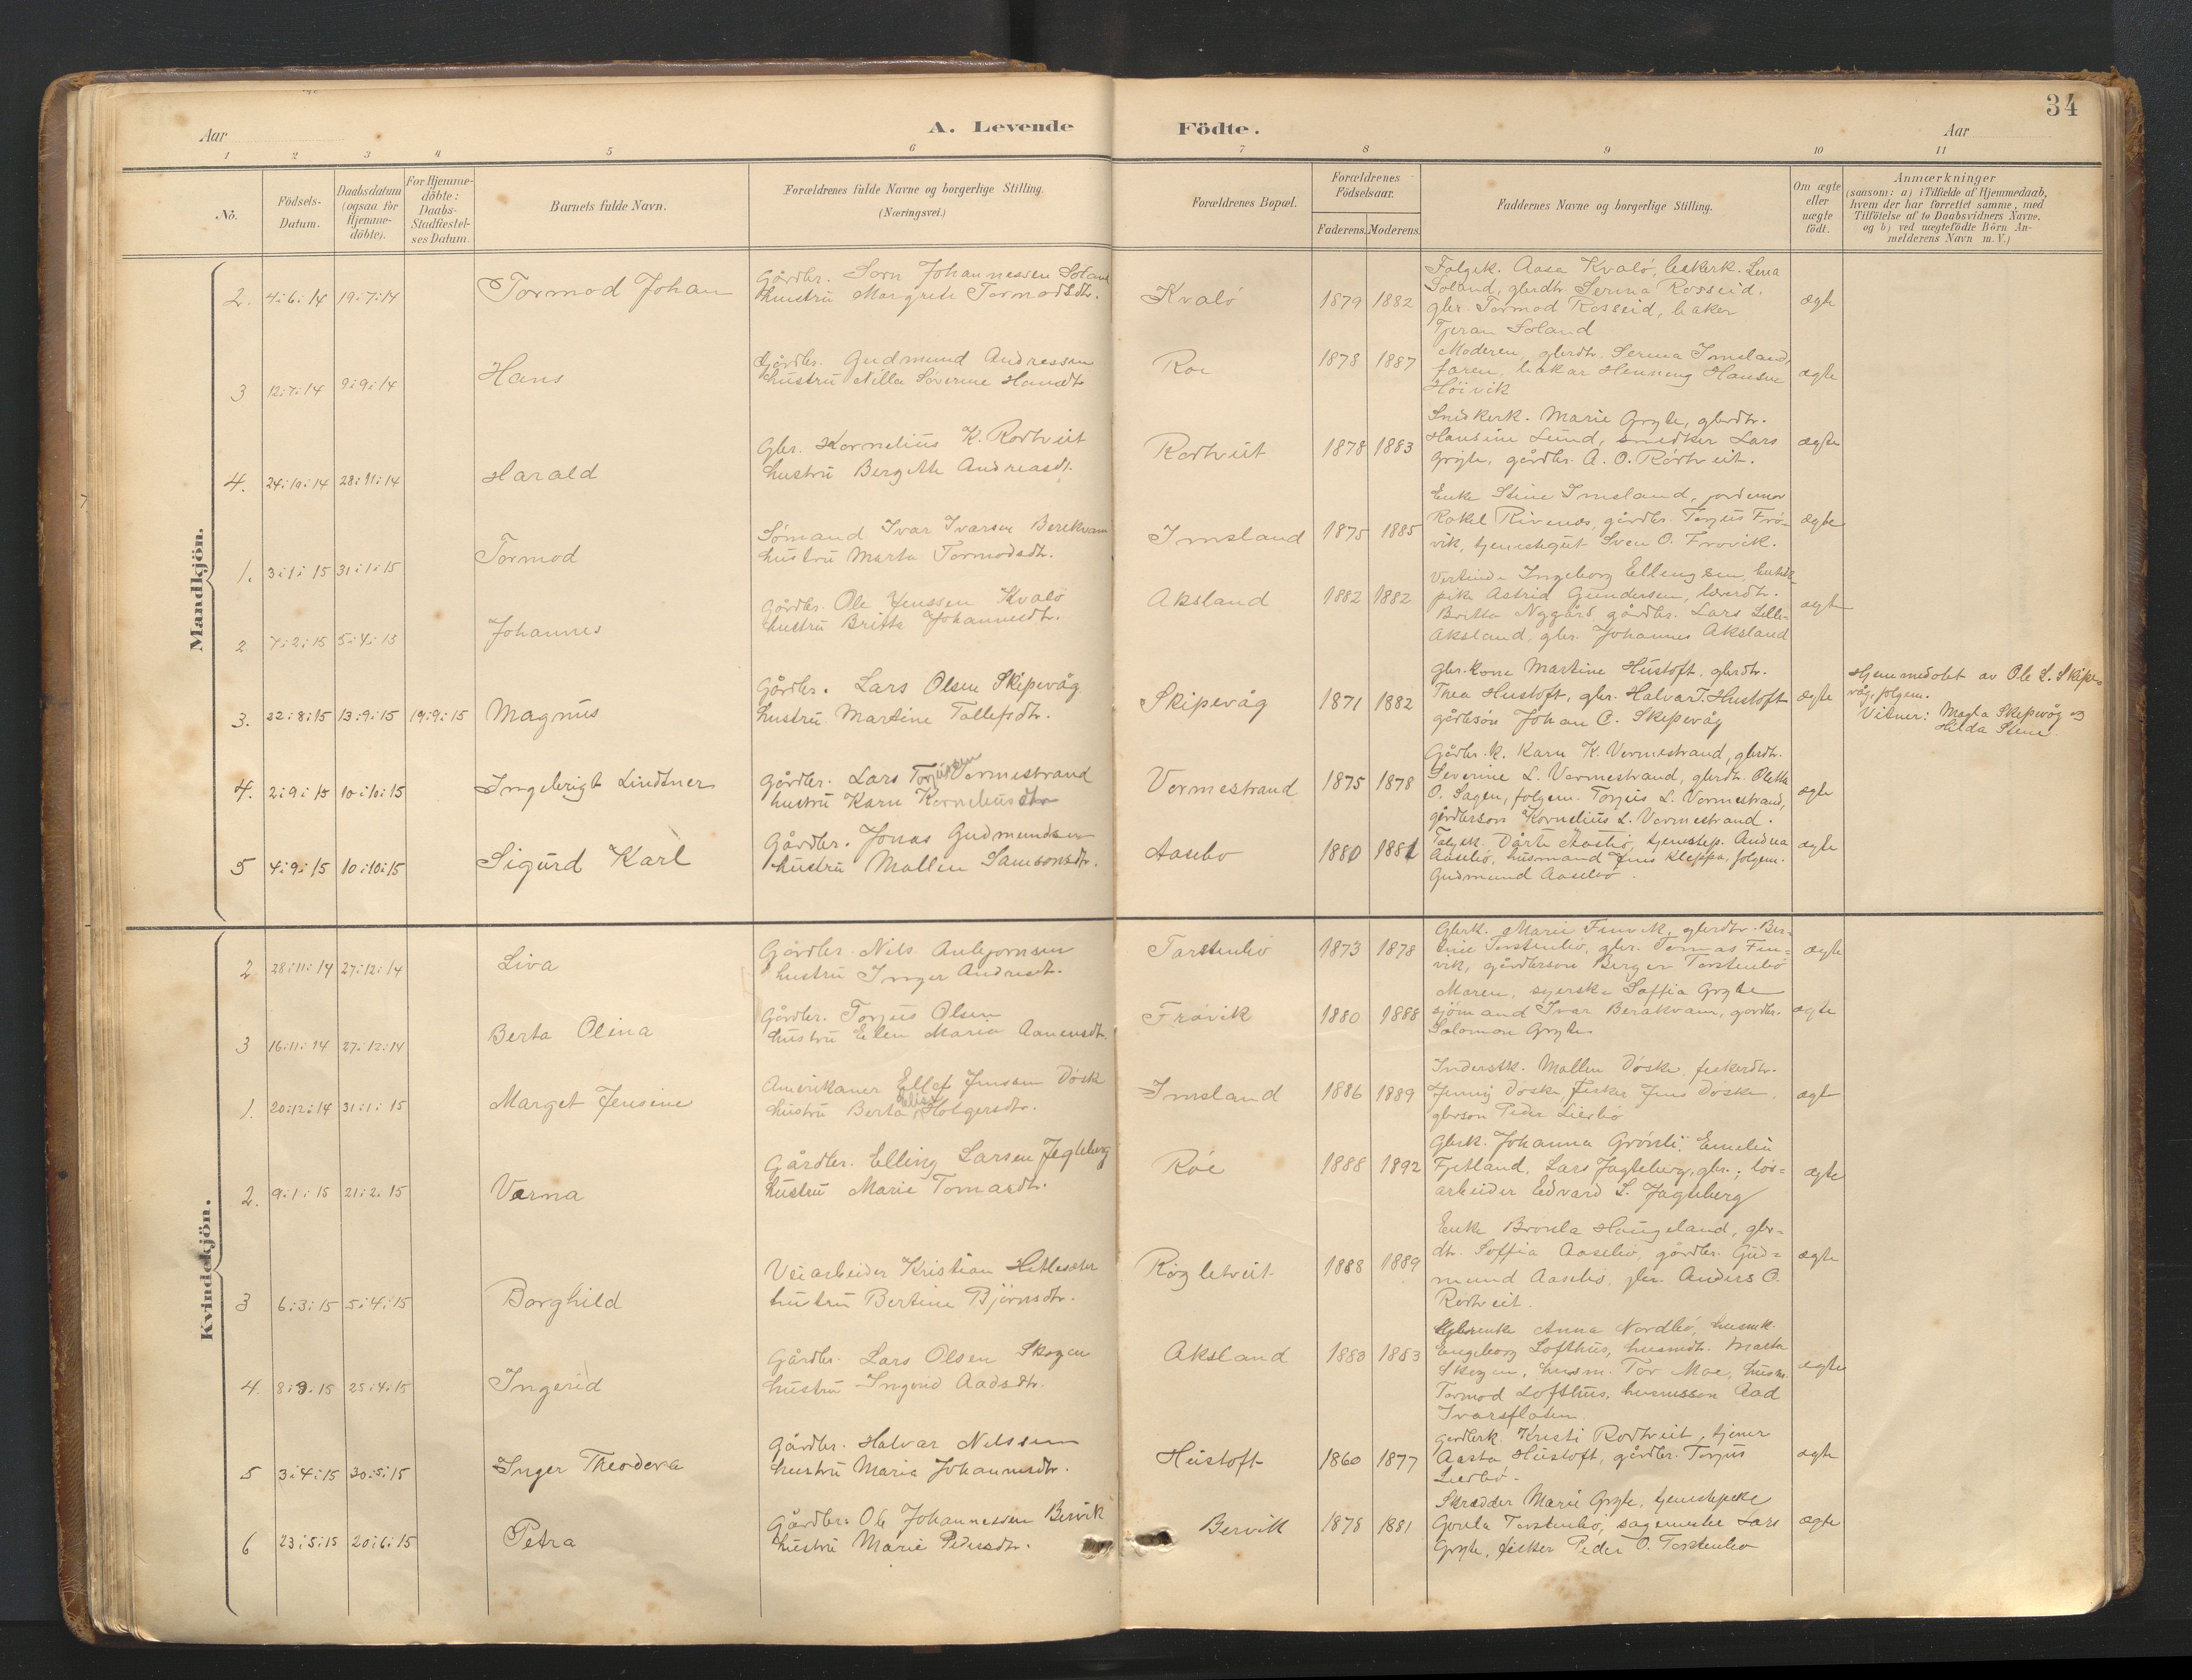 34
Aar
A. Levende Födte.
Aar
1 2 3 4 5 6 7 8 9 10 11
No.
Födsels-Datum.
Daabsdatum (ogsaa for Hjemme-döbte).
For Hjemme-döbte: Daabs-Stadfæstel-ses Datum.
Barnets fulde Navn.
Forældrenes fulde Navne og borgerlige Stilling.
(Næringsvei.)
Forældrenes Bopæl.
Forældrenes Födselsaar.
Faderens. Moderens.
Faddernes Navne og borgerlige Stilling.
Om ægte eller uægte födt.
Anmærkninger
(saasom: a) i Tilfælde af Hjemmedaab,
hvem der har forrettet samme, med
Tilföielse af to Daabsvidners Navne.
og b) ved uægtefödte Börn An-
melderens Navn m. V.)
Mandkjön.
2. 4:6:14 19:7:14 Tormod Johan
Gårdbr. Sørn Johannessen Soland
hustru Margrete Tormodsdtr.
Kvalö 1879 1882
Folgek. Aasa Kvalö, Lena
Soland, gbrdtr. Serina Rosseid.
gbr. Tormod Rosseid, baker
Tjeran Soland
ægte
3 12:7:14 9:9:14 Hans
Gårdbr. Gudmund Andressen
hustru Nilla Severine Hansdt
Roe 1878 1887
Moderen, gbrdtr. Serina Imsland,
faren, Henning Hansen
Höivik
ægte
4. 24:10:14 28:11:14 Harald
Gbr. Kornelius K. Rodtveit
hustru Bergitte Andreasdt.
Rodtveit 1878 1883
Snidkerk. Marie Gryte, gbrdtr.
Hansine Lund, snedker Lars
Gryte, gårdbr. A. O. Rödtveit.
ægte
1. 3:1:15 31:1:15 Tormod
Sømand Ivar Ivarsen Berekvam
hustru Marta Tormodsdtr.
Imsland 1875 1885
Enke Stine Imsland, jordemor
Rakel Rivenes, gårdbr. Torjus Frö-
vik, tjenestegut Sven O. Frovik.
ægte
2 7:2:15 5:4:15 Johannes
Gårdbr. Ole Jenssen Kvalö
hustru Britta Johannesdtr.
Aksland 1882 1882
Ingeborg Ellengsen,
pike Astrid Gundersen,
Britta Nygård gårdbr. Lars Lille-
Aksland, gbr. Johannes Aksland
ægte
3. 22:8:15 13:9:15 19:9:15 Magnus
Gårdbr. Lars Olsen Skipevåg
hustru Martine Tollefsdtr.
Skipevåg 1871 1882
gbr.kone Martine Hustoft, gbrdtr.
Thea Hustoft, gbr. Halvar T. Hustoft
gårbsön Johan C. Skipevåg
ægte
Hjemmedöbt av Ole L. Skipe-
våg, folgem.
Vitner: Magla Skipevåg og
Hilda Stene.
4. 2:9:15 10:10:15 Ingebrigt Lindtner
Gårdbr. Lars Torjussen Vormestrand
hustru Karn Kornelius dtr
Vormestrand 1875 1878
Gårdbr. k. Karn K. Vormestrand, gbrdtr.
Severine L. Vormestrand, gbrdtr. Olette
O. Sagen, folgem. Torjus L. Vormestrand,
gårdbrson Kornelius L. Vormestrand.
ægte
5 4:9:15 10:10:15 Sigurd Karl
Gårdbr. Jonas Gudmundsen
hustru Mallen Samsonsdtr.
Aasebo 1880 1881
Dårte Aasebö, tjenestep. Andrea
Aasebö, husmand Jens Kleppa, folgem.
Gudmund Aasebö.
ægte
Kvindekjön.
2 28:11:14 27:12:14 Liva
Gårdbr. Nils Anbjornsen
hustru Inger Andreasdt.
Tarstenbö 1873 1878
Gbrk. Marie Finvik, gbrdtr. Ber-
tine Torstenbö, gbr. Tomas Fin-
vik, gårdbrson Berger Torstenbö
ægte
3 16:11:14 27:12:14 Berta Olina
Gårdbr. Torjus Olsen
hustru Elen Maria Aanensdt.
Frövik 1880 1888
Maren, syerske Soffia Gryte
sjömand Ivar Berakvam, gårdbr.
Salomon Gryte
ægte
1. 20:12:14 31:1:15 Marget Jensine
Amerikaner Ellef Jenssen Döske
hustru Berta Holgersdtr.
Imsland 1886 1889
Inderstk. Mallen Döske, fiskerdtr.
Jenny Döske, fisker Jens Döske,
gbrson Peder Lierbö
ægt
2. 9:1:15 21:2:15 Verna
Gårdbr. Elling Larsen Jegteberg
hustru Marie Tomasdtr.
Röe 1888 1892
Gbrk. Johanna Grönli. Emelie
Fjetland. Lars Jagteberg, gbr.; lös-
arbeider Edvard L. Jagteberg
ægte
3 6:3:15 5:4:15 Borghild
Veiarbeider Kristian Hetlesæter
hustru Bertine Björnsdtr.
Rögletveit 1888 1889
Enke Brorla Haugeland, gbr-
dtr. Soffia Aasebö, gårdbr. Gud-
mund Aasebö, gbr. Anders O.
Rödtveit.
ægte
4. 8:3:15 25:4:15 Ingerid
Gårdbr. Lars Olsen Skogen
hustru Ingerid Aadsdtr.
Aksland 1880 1883
Anna Nordbö, husmk.
Engeborg Lofthus, husmdt. Marta
Skogen, husm. Tor Moe, husm.
Tormod Lofthus, husmsson Aad
Ivarsflaten.
ægte
5 3:4:15 30:5:15 Inger Theodora
Gårdbr. Halvar Nilssen
hustru Maria Johannesdtr.
Hustoft 1860 1877
Gårdbrk. Kristi Rodtveit, tjener
Aasta Hustoft, gårdbr. Torjus
Lierbö.
ægte
6 23:5:15 20:6:15 Petra
Gårdbr. Ole Johannessen Bervik
hustru Marie Pedersdtr.
Bervik 1878 1881
Skrædder Marie Gryte, tjenestepike
Gorila Torstenbö, sagmester Lars
Gryte, fisker Peder O. Torstenbö
ægte